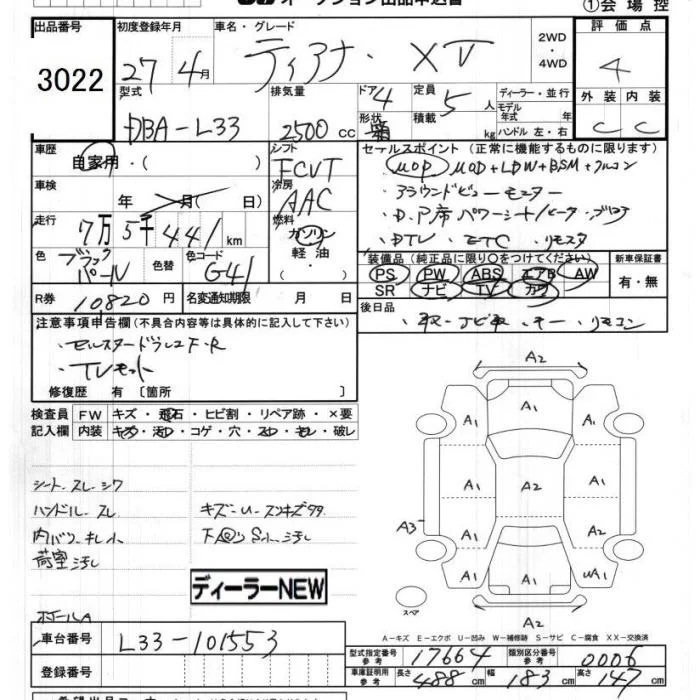 オークション出品申込書
①会場控
出品番号
初度登録年月
車名・グレード
評価点
3022
27年4月
ティアナ・XV
2WD
・
4WD
4
型式
排気量
ドア 4
定員
5人
ディーラー・並行
外装 内装
DBA-L33
2500cc
形状
積載
kg
モデル年式 年
ハンドル 左・右
C C
車歴
シフト
セールスポイント (正常に機能するものに限ります)
自家用・( )
FCVT
MOP MOD+LDW+BSM+
車検
年 月( 日)
冷房
AAC
・アラウンドビューモニター
走行
7万5千441km
燃料
ガソリン
軽油
・
・D.P席パワーシート/ヒーター・
・DTV ・ETC ・リモスタ
色
ブラックパール
色替
色コード
G41
装備品 (純正品に限り○をつけてください)
新車保証書
PS PW ABS エアB AW
SR ナビ TV カワ
有・無
R券
10820円
名変通知期限 月 日
後日品
・取・ナビ取・キー・リモコン
注意事項申告欄(不具合内容等は具体的に記入して下さい)
・セルスタードラレコF・R
・TVキット
修復歴 有〔箇所 〕
検査員 FW キズ・飛石・ヒビ割・リペア跡・×要
記入欄 内装 キズ・汚レ・コゲ・穴・スレ・キレ・破レ
シートスレシワ
ハンドルスレ
内バリキレ小
荷室汚レ
キズ-U-スリキズ99
ディーラーNEW
A2
A1
A1 A1
A1 A2 A1
A3
A1 A2
A1 A1 UA1
A2
スペア
A-キズ E-エクボ U-凹み W-補修跡 S-サビ C-腐食 XX-交換済
車台番号
L33-101553
型式指定番号
参考
17664
類別区分番号
参考
0006
登録番号
車庫証明用
参考
長さ
488cm
幅
183cm
高さ
147cm